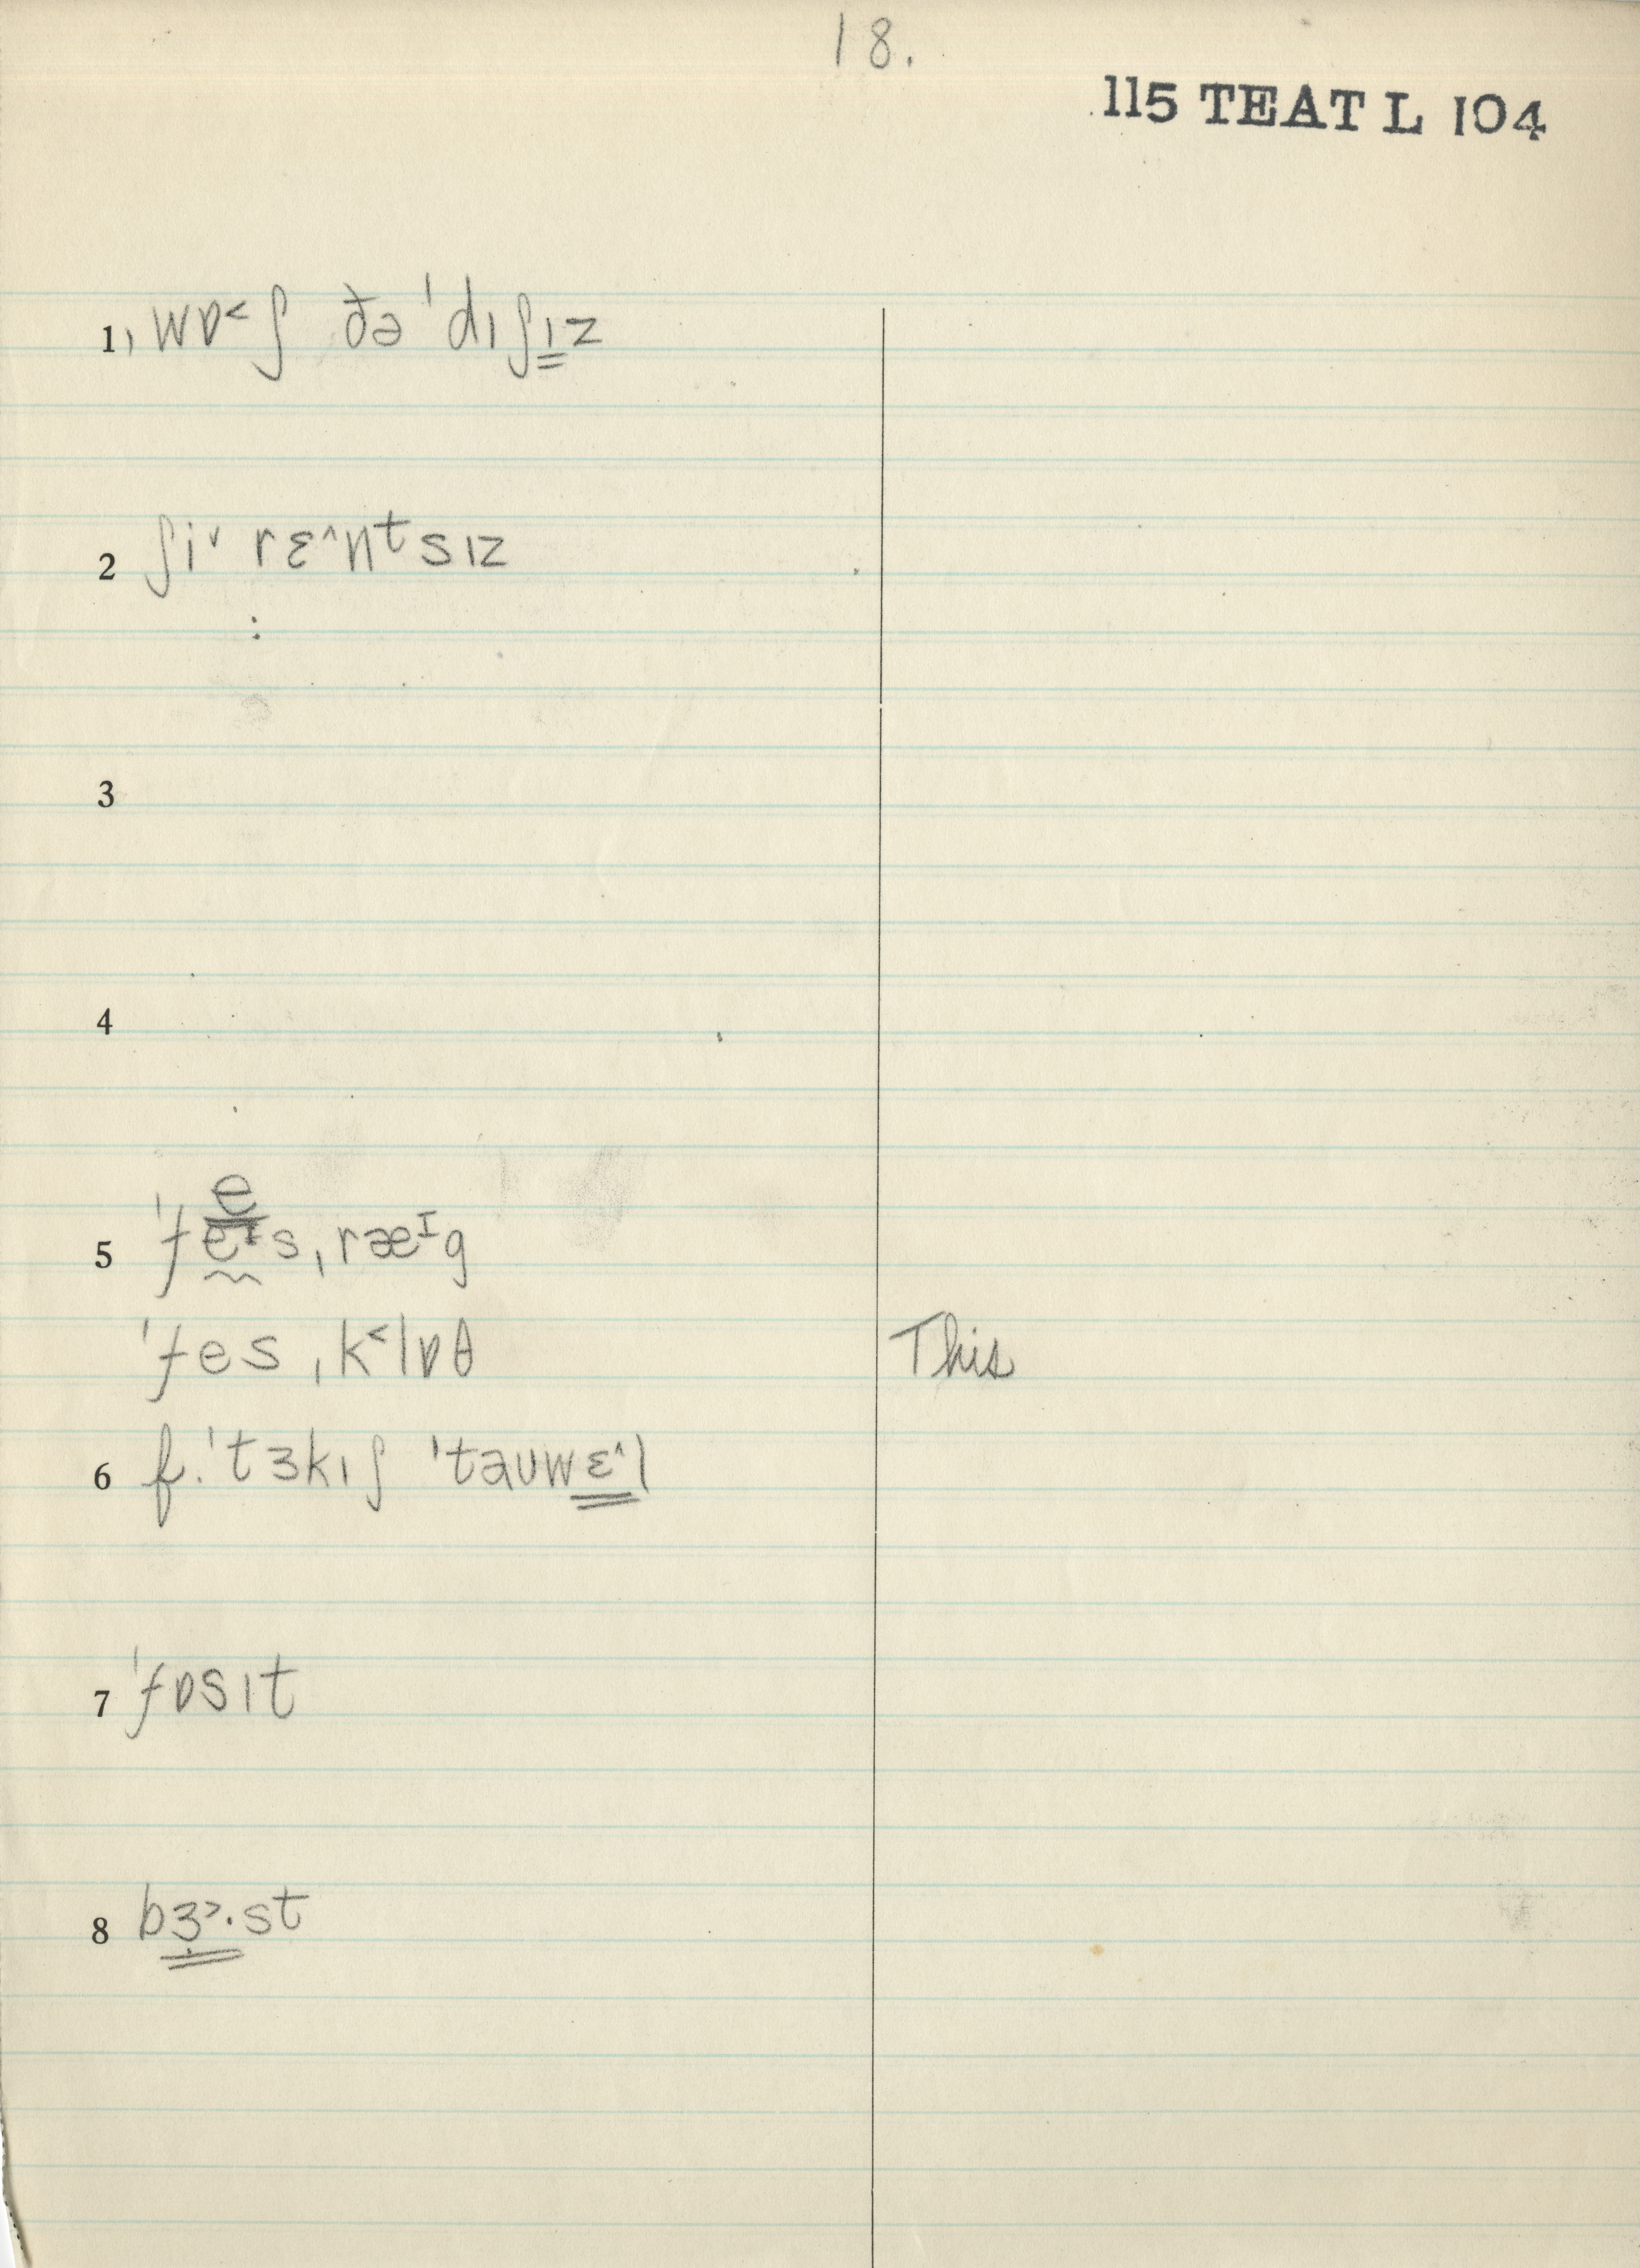 18.
115 TEAT L 104
1, wɒ˂ʃ ðə ˈdɪʃɪz
2 ʃi˅ rɛ˄nᵗsɪz
:
3
4
e
5 ˈfeᶦsˌræᶦg
ˈfesˌk˂lɒθ This
6 f. ˈtɜkɪʃ ˈtaʊwɛ˄l
7 ˈfɒsɪt
8 bɜ˃·st